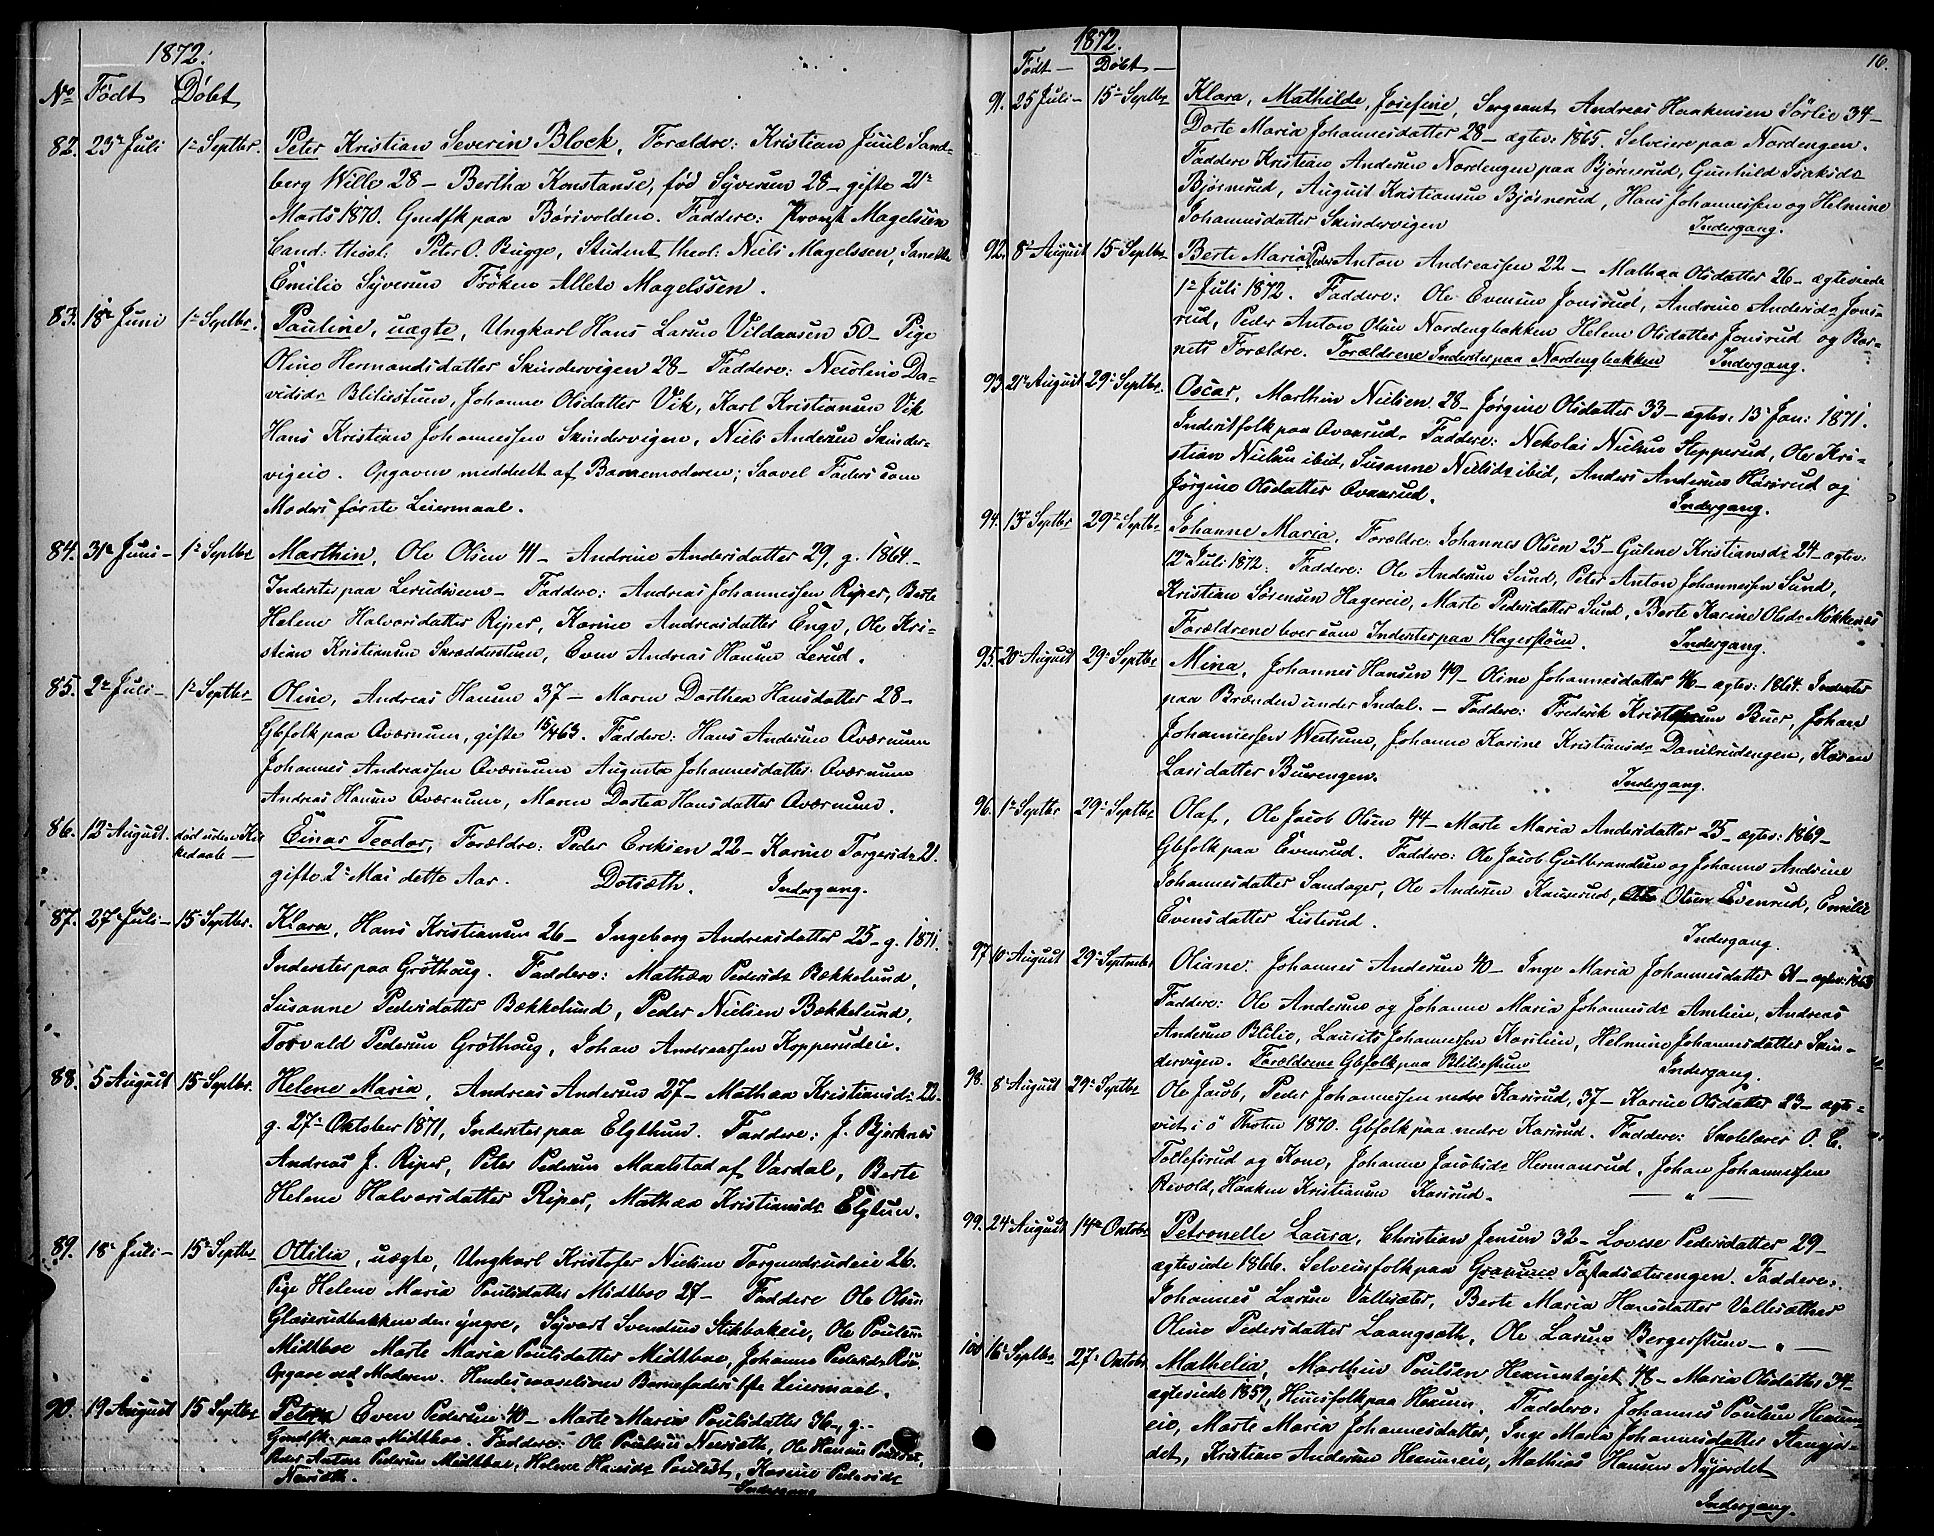 1872.
No Født Døbt
82. 23de Juli 1ste Septbr. Peter Kristian Severin Block, Forældre: Kristian Juul Sand-
berg Wille 28 - Bertha Konstanse, fød Syversen 28 - gifte 21de
Marts 1870. Gmdfk paa Børsvolden. Faddere: Provst Magelssen
Cand: theol: Peter O. Bugge, Student theol: Niels Magelssen,
Emilie Syversen Frøken Allete Magelssen.
83. 18de Juni 1ste Septbr. Pauline, uægte, Ungkarl Hans Larsen Vildaasen 50 - Pige
Oline Hermandsdatter Skindervigen 28 - Faddere: Nicoline Da-
vidsdr Bliliestuen, Johanne Olsdatter Vik, Karl Kristiansen Vik
Hans Kristian Johannessen Skindervigen, Niels Andersen Skinder-
vigeie. Opgaven meddelt af Barnemoderen; Saavel Faders som
Moders første Leiermaal.
84. 31te Juni - 1ste Septbr Marthin, Ole Olsen 41 - Andrine Andersdatter 29, g. 1864 -
Inderster paa Lerudseen - Faddere: Andreas Johannessen Riper, Berte
Helene Halvorsdatter Riper, Karine Andreasdatter Enge, Ole Kri-
stian Kristiansen Skrædderstuen, Even Andreas Hansen Lerud.
85. 2de Juli - 1ste Septbr Oline, Andreas Hansen 37 - Maren Dorthea Hansdatter 28 -
Gbfolk paa Qværnum, gifte 15/4 63. Faddere: Hans Andersen Qværnum
Johannes Andreassen Qværnum Augusta Johannesdatter Qværnum
Andreas Hansen Qværnum, Maren Dortea Hansdatter Qværnum.
86. 12te August. død uden Kir
kedaab - Einar Teodor, Forældre: Peder Eriksen 22 - Karine Torgersdr 21.
gifte 2den Mai dette Aar. Dotsæth. Indergang.
87. 27 Juli - 15 Septbr. Klara, Hans Kristiansen 26 - Ingeborg Andreasdatter 25 - g. 1871.
Inderster paa Grøthoug. Faddere: Mathea Pedersdr Bækkelund,
Susanne Pedersdatter Bækkelund, Peder Nielsen Bækkelund,
Torvald Pedersen Grøthoug, Johan Andreassen Kopperudeie.
88. 5 August 15 Septbr. Helene Maria, Andreas Andersen 27 - Mathea Kristiansdr 22 -
g. 27de Oktober 1871, Inderster paa Elgthun. Faddere: J. Bjerknes
Andreas J. Riper, Peter Pedersen Maalstad af Vardal, Berte
Helene Halvorsdatter Riper, Mathea Kristiansdr Elgtun.
89. 18de Juli - 15 Septbr Ottilia, uægte, Ungkarl Kristofer Nielsen Torgundrudeie 26.
Pige Helene Maria Poulsdatter Midtboe 27 - Faddere Ole Olsen
Glæserudbakken den yngre, Syvert Svendsen Stikbakeie, Ole Poulsen
Midtboe Marte Maria Poulsdatter Midtboe, Johanne Pedersdr
Opgave ved Moderen. Hendes Barnefaders 1ste Leiermaal.
90. 19 August 15 Septbr Even Pedersen 40 - Marte Maria Poulsdatter 36, g. -
Gmdfk. paa Midtboe. Faddere: Ole Poulsen, Ole Hansen
Anton Pedersen Midtboe, Helene Hansdr, Karine Pedersdr
Indergang
1872. 16.
Født - Døbt -
91. 25 Juli - 15de Septbr Klara, Mathilde, Josefine, Sergeant Andreas Haakensen Sørlie 34 -
Dorte Maria Johannesdatter 28 - ægtev: 1865. Selveiere paa Nordengen.
Faddere Kristian Andersen Nordengen paa Bjørnerud, Gunhild Isaksdr
Bjørnerud, August Kristiansen Bjørnerud, Hans Johannessen og Helmine
Johannesdatter Skindervigen Indergang.
92. 8de August 15 Septbr Berte Maria, Peder Anton Andreassen 22 - Mathea Olsdatter 26 - ægteviede
1ste Juli 1872. Faddere: Ole Evensen Jonsrud, Andrine Andersdr Jons-
rud, Peder Anton Olsen Nordengbakken Helene Olsdatter Jonsrud og Bar-
nets Forældre. Forældrene Inderster paa Nordengbakken Indergang.
93. 21de August 29de Septbr. Oscar, Marthin Nielsen 28 - Jørgine Olsdatter 33 - ægtev: 13de Jan: 1871.
Inderstfolk paa Qværnrud. Faddere: Nekolai Nielsen Stepperud, Ole Kri-
stian Nielsen ibid, Susanne Nielsdr ibid, Anders Andersen Harsrud og
Jørgine Olsdatter Indergang.
94. 13de Septbr 29de Septbr Johanne Maria, Forældre: Johannes Olsen 25 - Gulene Kristiansdr 24 - ægtev:
12te Juli 1872: Faddere: Ole Andersen Sund, Peter Anton Johannessen Sund,
Kristian Sørensen Hagereie, Marte Pedersdatter Sund, Berte Karine Olsdr
Forældrene boer som Inderster paa Hagerstøen. Indergang.
95. 20de August 29de Septbr Mina, Johannes Hansen 49 - Oline Johannesdatter 46 - ægtev: 1864. Inderster
paa Brænden under Indal. - Faddere: Frederik Kristofersen Buer, Johan
Johannessen Westrum, Johanne Karine Kristiansdr Danielrudengen, Karen
Larsdatter Buerengen. Indergang.
96. 1ste Septbr 29de Septbr Olaf, Ole Jacob Olsen 44 - Marte Maria Andersdatter 25 - ægtev: 1869 -
Gbfolk paa Evenrud. Faddere: Ole Jacob Gulbrandsen og Johanne Andrine
Johannesdatter Sandager, Ole Andersen Kauserud, Olsen Evenrud, Emilie
Evensdatter Listerud. Indergang.
97 10de August 29de September Oliane. Johannes Andersen 40 - Inge Maria Johannesdatter 31 - ægtev: 1863
Faddere: Ole Andersen og Johanne Maria Johannesdr Amlien, Andreas
Andersen Blilie, Laurits Johannessen Karslien, Helmine Johannesdatter Skin-
dervigen. Forældrene Gbfolk paa Bliliestuen Indergang.
98. 8de August 29de Septbr Ole Jacob, Peder Johannessen nedre Karsrud, 37 - Karine Olsdatter 23 - ægte-
viet i ø Thoten 1870. Gbfolk paa nedre Karsrud. Faddere: Skolelærer O. C.
Tollefsrud og Kone, Johanne Jacobsdr Hermanrud, Johan Johannessen
Revold, Haaken Kristiansen Karsrud. - " -
99. 24de August 14de Oktobr Petronelle Laura, Christian Jensen 32 - Lovise Pedersdatter 29 -
ægteviede 1866. Selveierfolk paa Taftadsæterengen. Faddere:
Johannes Larsen Vallesæter, Berte Maria Hansdatter Vallesæther
Oline Pedersdatter Laangsæth, Ole Larsen Bergerstuen - " -
100 16de Septbr 27de Oktobr. Mathelia, Marthin Poulsen Hexumhøjet 48 - Maria Olsdatter 34 -
ægteviede 1859, Huusfolk paa Hexum. Faddere: Johannes Poulsen Hexum-
eie, Marte Maria Johannesdatter, Inge Maria Johannesdatter Stangjor-
det, Kristian Andersen Hexumeie, Mathias Hansen Nyjordet
Indergang.